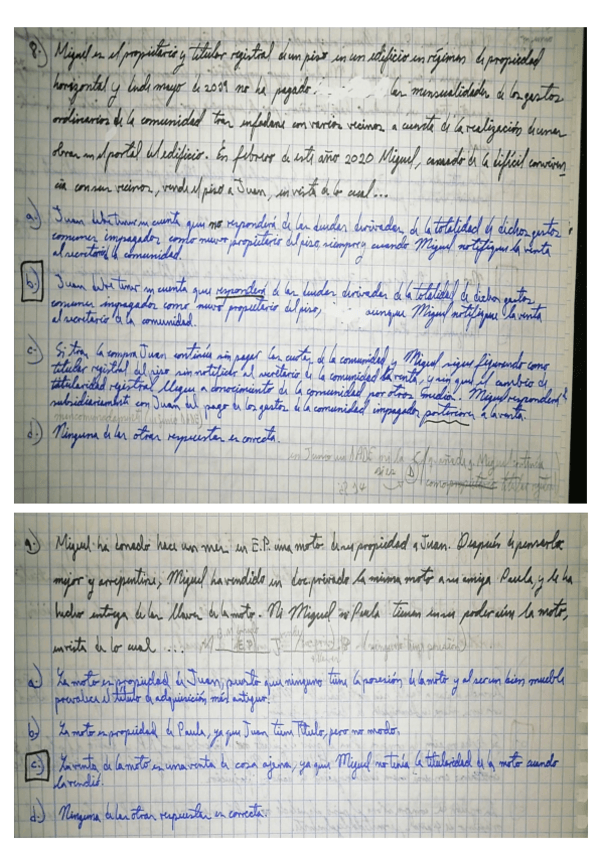 8.) Miguel es el propietario y titular registral de un piso en un edificio en régimen de propiedad
horizontal y desde mayo de 2019 no ha pagado . . . las mensualidades de los gastos
ordinarios de la comunidad tras enfadarse con varios vecinos a cuenta de la realización de unas
obras en el portal del edificio. En febrero de este año 2020 Miguel, cansado de la difícil conviven_
cia con sus vecinos, vende el piso a Juan, en vista de lo cual...
a.) Juan debe tener en cuenta que no responderá de las deudas derivadas de la totalidad de dichos gastos
comunes impagados como nuevo propietario del piso, siempre y cuando Miguel notifique la venta
al secretario de la comunidad.
b.) Juan debe tener en cuenta que responderá de las deudas derivadas de la totalidad de dichos gastos
comunes impagados como nuevo propietario del piso, aunque Miguel notifique la venta
al secretario de la comunidad.
c.) Si tras la compra Juan continúa sin pagar las cuotas de la comunidad y Miguel sigue figurando como
titular registral del piso sin notificar al secretario de la comunidad la venta, y sin que el cambio de
titularidad registral llegue a conocimiento de la comunidad por otros medios. Miguel responderá
subsidiariamente con Juan del pago de los gastos de la comunidad impagados posteriores a la venta.
d.) Ninguna de las otras respuestas es correcta.
9.) Miguel ha donado hace un mes en E.P. una moto de su propiedad a Juan. Después de pensarlo
mejor y arrepentirse, Miguel ha vendido en doc. privado la misma moto a su amiga Paula, y le ha
hecho entrega de las llaves de la moto. Ni Miguel ni Paula tienen en su poder aún la moto,
en vista de lo cual ...
a) La moto es propiedad de Juan, puesto que ninguno tiene la posesión de la moto y al ser un bien mueble
prevalece el título de adquisición más antiguo.
b) La moto es propiedad de Paula, ya que Juan tiene Título, pero no modo.
c.) La venta de la moto es una venta de cosa ajena, ya que Miguel no tenía la titularidad de la moto cuando
la vendió.
d.) Ninguna de las otras respuestas es correcta.